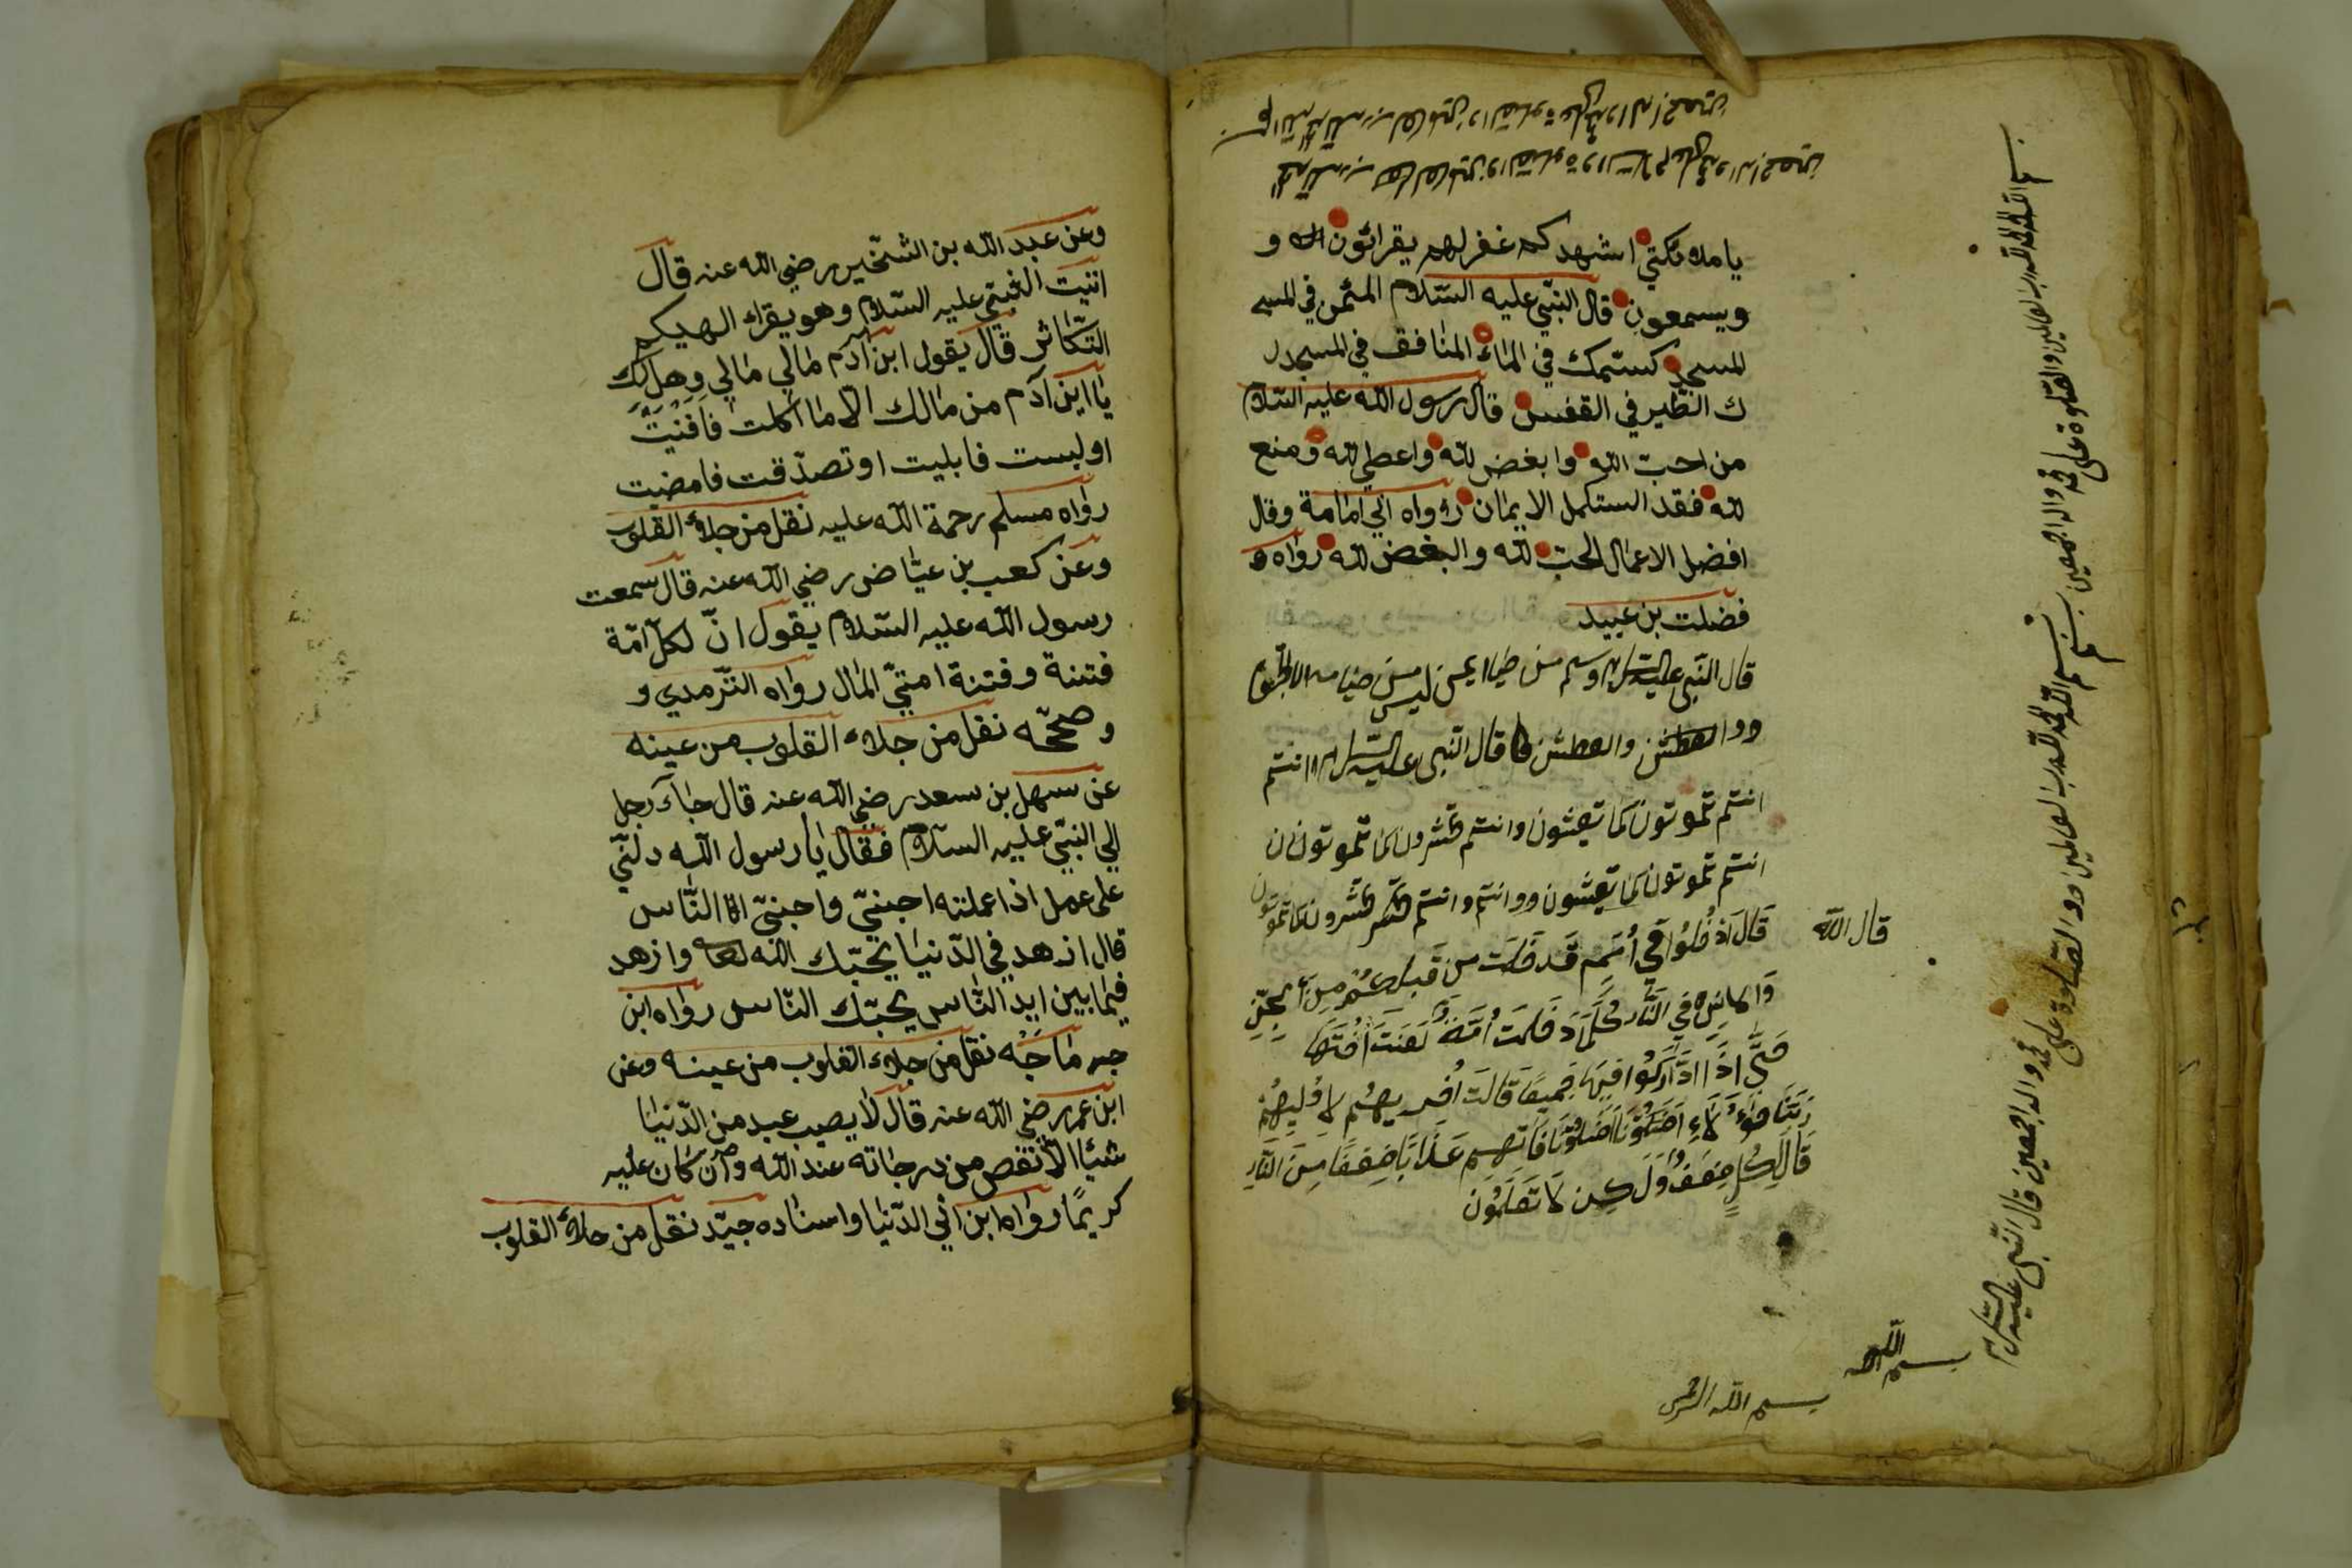 بسم الله الحمد لله رب العالمين والصلوة على محمد واله اجمعين
الحمد لله رب العالمين والصلوة والسلام على محمد واله اجمعين
يا ملائكتي اشهدكم غفر لهم يقرائون و
ويسمعون قال النبي عليه السّلام المئمن في المسجـ
المسجد كستمك في الماء المنافق في المسجد
ك الطير في القفس قال رسول الله عليه السّلام
من احبّ الله وابغض لله واعطي لله ومنع
لله فقد الستكمل الايمان رواه ابي امامة وقال
افضل الاعمال الحبّ لله والبغض لله رواه و
فضلت بن عبيد
قال النّبى عليه السّلام وسلم من صيامه الا الجوع
والعطش والعطش كما قال النّبى عليه السّلام انتم
انتم تموتون كما تعيشون وانتم تحشرون كما تموتون
انتم تموتون كما تعيشون ووانتم وانتم تحشر تحشرون كما تموتون
قال الله
قَالَ ادْخُلُوا فِي أُمَمٍ قَدْ خَلَتْ مِن قَبْلِكُمْ مِنَ الْجِنِّ
وَالانِسِ فِي النَّارِ كُلَّمَا دَخَلَتْ أُمَّةٌ لَعَنَتْ أُخْتَهَا
حَتَّى اِذَا ادَّارَكُوا فِيهَا جَمِيعًا قَالَتْ اُخْريهُمْ لِاُولِيهُمْ
رَبَّنَا هَؤُلَاءِ اَضَلُّونَا اَضَلُّونَا فَاَتِهِمْ عَذَابًا ضِعْفًا مِنَ النَّارِ
قَالَ لِكُلٍّ ضِعْفٌ وَلَكِن لَا تَعْلَمُونَ
بسم الله الحمد لله رب العالمين والصّلوة على محمد واله اجمعين بسم
بسم الله الحمد لله رب العالمين وو الصّلوة على محمد واله اجمعين قال النّبى عليه السّلام
بسم الله
بسم الله الرحمن
وعن عبد الله بن الشّخّير رضي الله عنه قال
اتيت النبّي عليه السّلام وهو يقراء الهيكم
التّكاثر قال يقول ابن آدم مالي مالي وهل لك
يا ابن آدم من مالك الّا ما اكلت فَافْنَيْتَ
او لبست فابليت او تصدّقت فامضيت
رواه مسلم رحمة الله عليه نقل من جلاء القلوب
وعن كعب بن عيّاض رضي الله عنه قال سمعت
رسول الله عليه السّلام يقول انّ لكلّ امّة
فتنة وفتنة امتيّ المال رواه التّرمدي و
وصحّحه نقل من جلاء القلوب من عينه
عن سهل بن سعد رضي الله عنه قال جاء رجل
الي النبّي عليه السّلام فقال يا رسول الله دلنّي
على عمل اذا عملته احبنّي واحبنّي النّاس
قال ازهد في الدّنيا يحبّك الله تعا وازهد
فيما بين ايد النّاس يحبّك النّاس رواه ابن
ماجَه نقل من جلاء القلوب من عينه وعن
ابن عمر رضي الله عنه قال لا يصيب عبد من الدّنيا
شيئا الّا نقص من درجاته عند الله وان كان عليه
كريمًا رواه ابن ابي الدّنيا واسناده جيّد نقل من جلاء القلوب